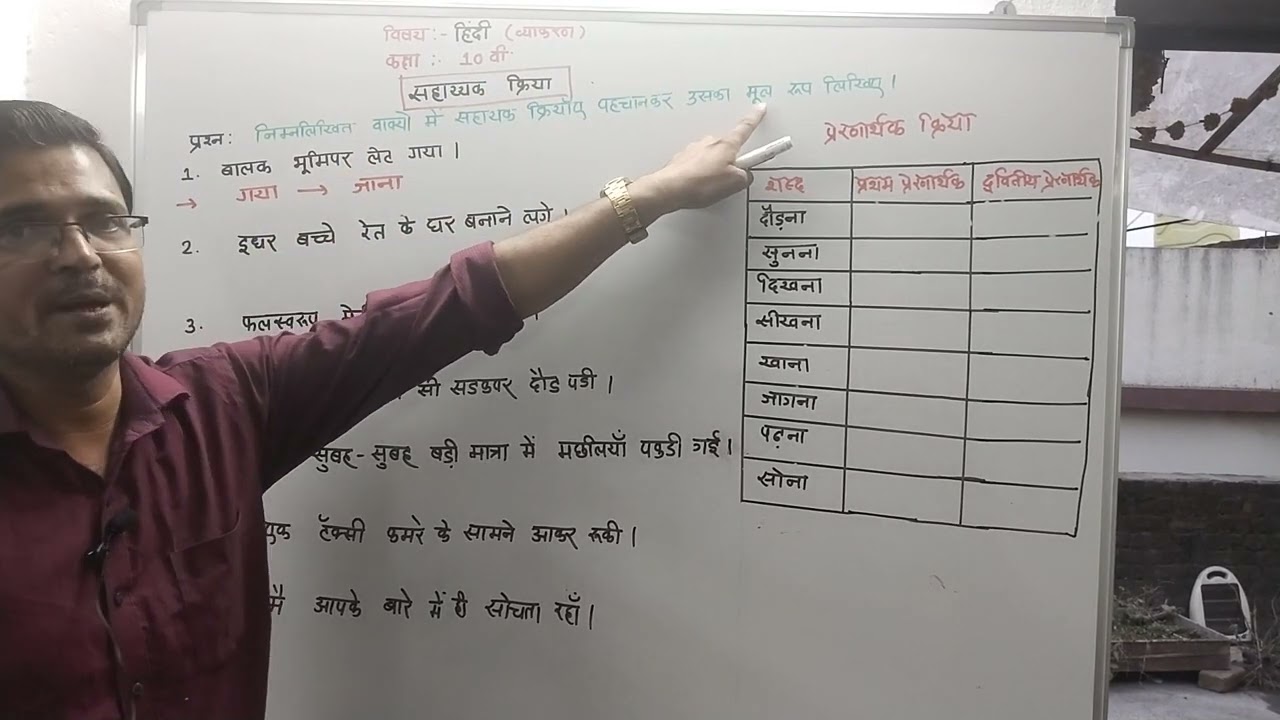 विषय :- हिंदी (व्याकरन)
कक्षा :- 10 वी.
सहाय्यक क्रिया
प्रश्न: निम्नलिखित वाक्यो में सहायक क्रियाँए पहचानकर उसका मूल रूप लिखिए।
1. बालक भूमिपर लेट गया।
→ गया → जाना
2. इधर बच्चे रेत के घर बनाने लगे।
3. फलस्वरूप
सी सडकपर दौड पडी।
सुबह-सुबह बड़ी मात्रा में मछलीयाँ पकडी गई।
एक टॅक्सी कमरे के सामने आकर रूकी।
मै आपके बारे में ही सोचता रहाँ।
प्रेरनार्थक क्रिया
शब्द प्रथम प्रेरनार्थक द्वितीय प्रेरनार्थक
दौड़ना
सुनना
दिखना
सीखना
खाना
जागना
पढ़ना
सोना